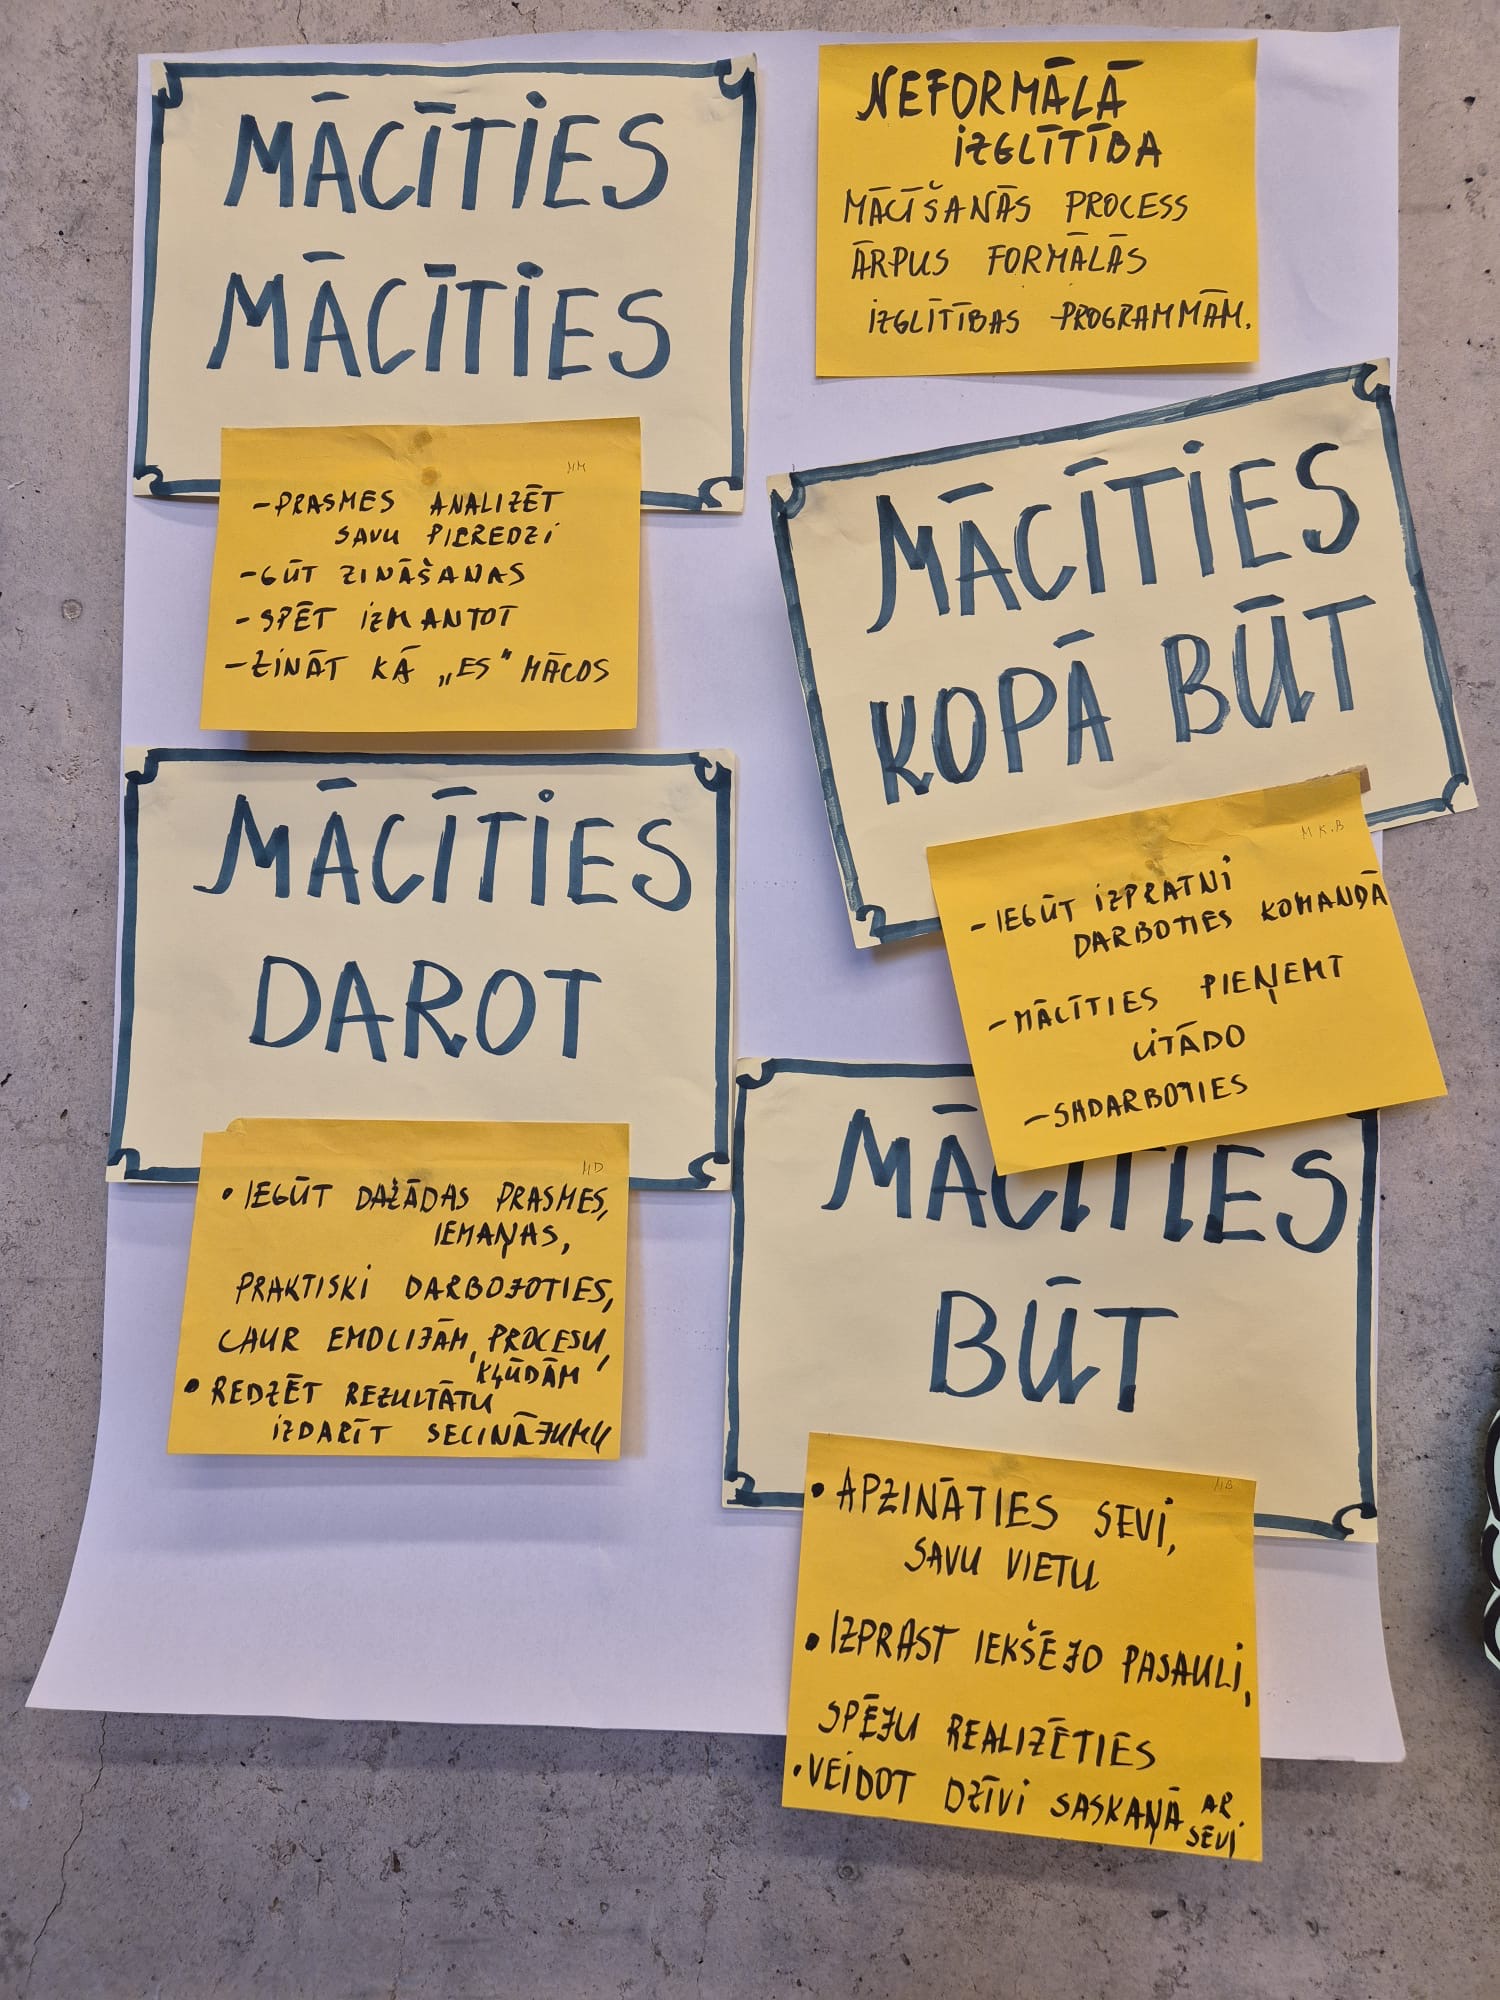 MĀCĪTIES
MĀCĪTIES
MM
- PRASMES ANALIZĒT
SAVU PIEREDZI
- GŪT ZINĀŠANAS
- SPĒT IZMANTOT
- ZINĀT KĀ „ES" MĀCOS
NEFORMĀLĀ
IZGLĪTĪBA
MĀCĪŠANĀS PROCESS
ĀRPUS FORMĀLĀS
IZGLĪTĪBAS PROGRAMMĀM.
MĀCĪTIES
KOPĀ BŪT
M K.B
- IEGŪT IZPRATNI
DARBOTIES KOMANDĀ
- MĀCĪTIES PIEŅEMT
CITĀDO
- SADARBOTIES
MĀCĪTIES
DAROT
MD
• IEGŪT DAŽĀDAS PRASMES,
IEMAŅAS,
PRAKTISKI DARBOJOTIES,
CAUR EMOCIJĀM, PROCESU,
KĻŪDĀM
• REDZĒT REZULTĀTU
IZDARĪT SECINĀJUMU
MĀCĪTIES
BŪT
MB
• APZINĀTIES SEVI,
SAVU VIETU
• IZPRAST IEKŠĒJO PASAULI,
SPĒJU REALIZĒTIES
• VEIDOT DZĪVI SASKAŅĀ AR
SEVI